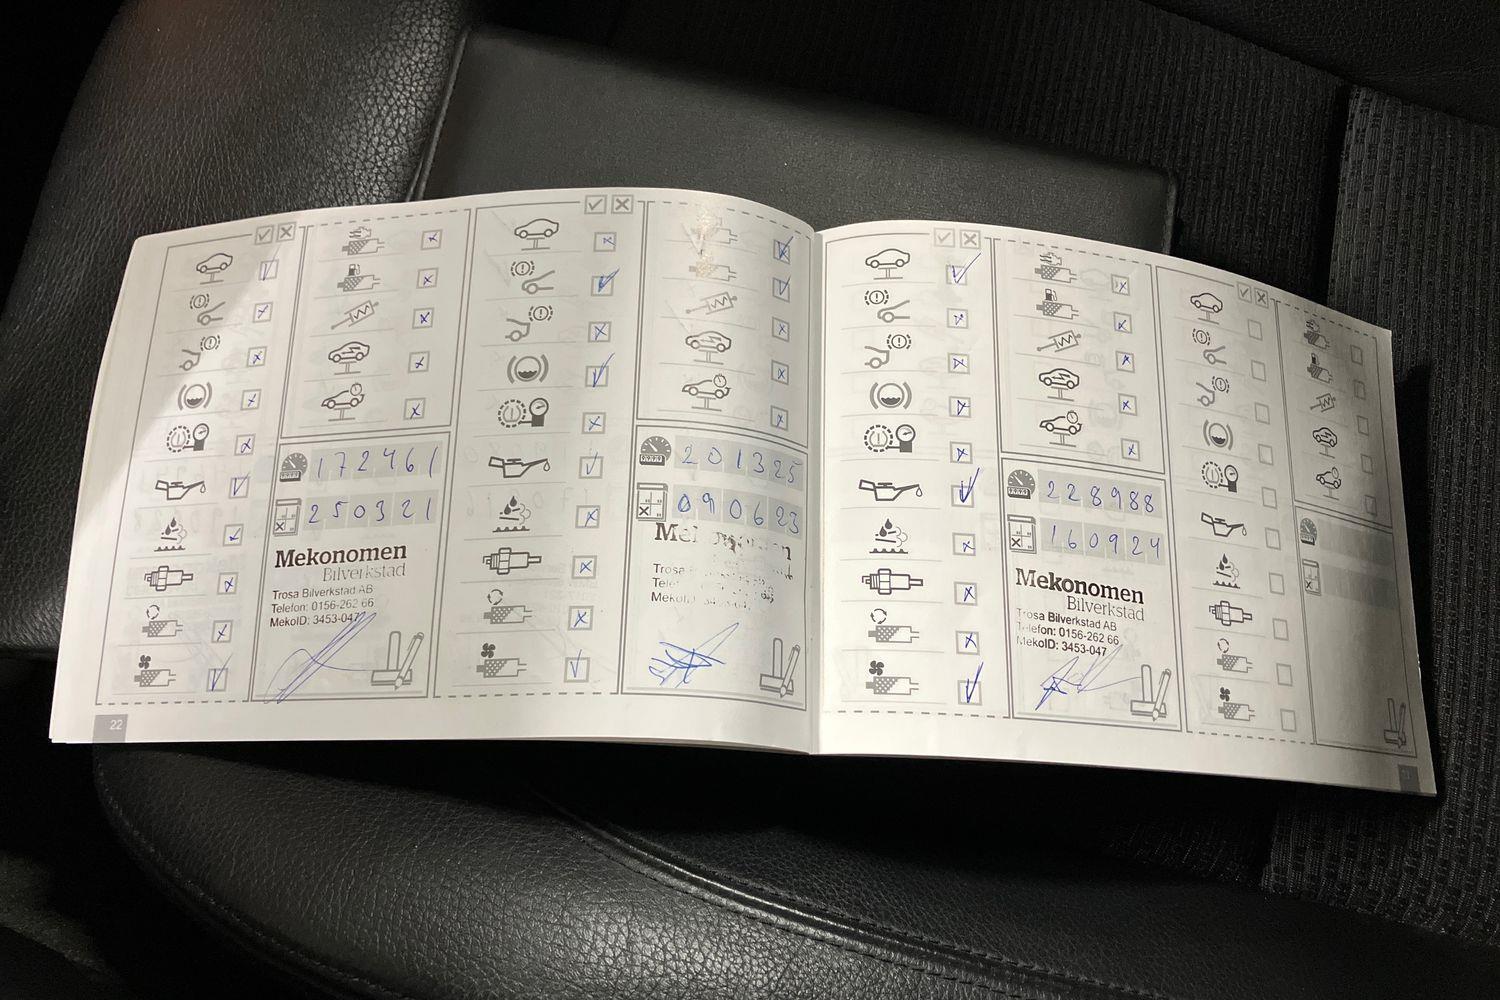 172461
250321
Mekonomen
Bilverkstad
Trosa Bilverkstad AB
Telefon: 0156-262 66
MekoID: 3453-047
22
201325
090623
Trosa
228988
160924
Mekonomen
Bilverkstad
Trosa Bilverkstad AB
Telefon: 0156-262 66
MekoID: 3453-047